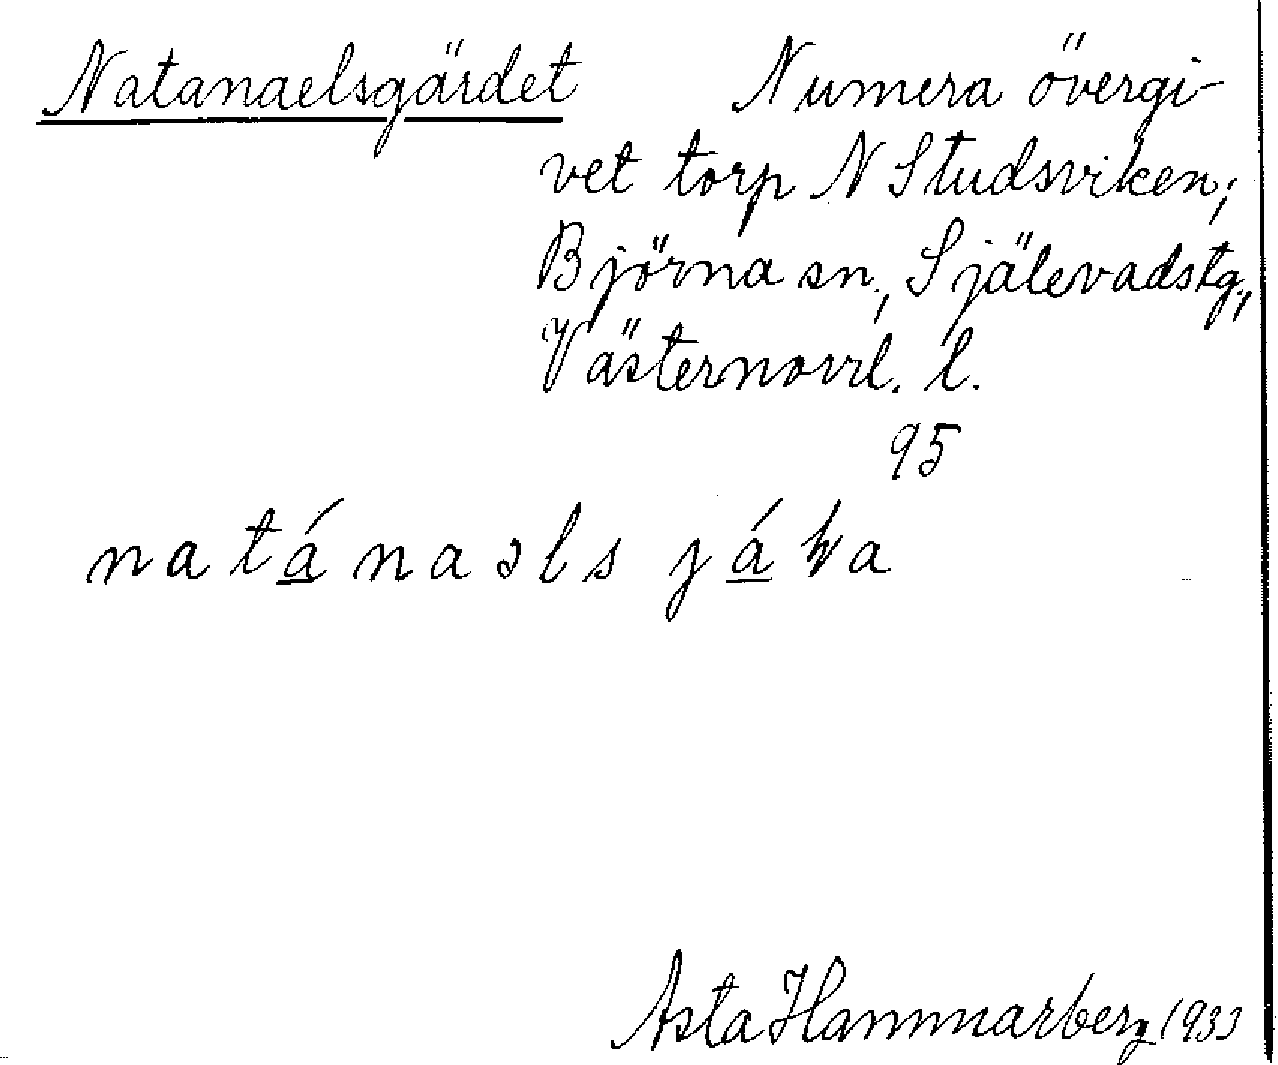 Natanaelsgärdet Numera övergi-
vet torp N Studsviken,
Björna sn., Själevadstg.,
Västernorrl. l.
95
natánaəls já
Asta Hammarberg 1933